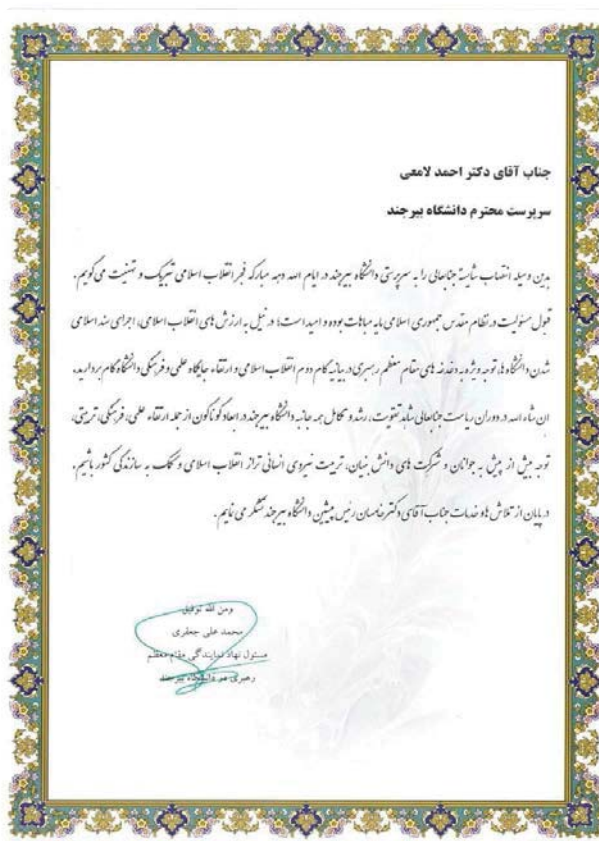 جناب آقای دکتر احمد لامعی
سرپرست محترم دانشگاه بیرجند
بدین وسیله انتصاب شایسته جنابعالی را به سرپرستی دانشگاه بیرجند در ایام الله دهه مبارکه فجر انقلاب اسلامی تبریک و تهنیت می گویم.
قبول مسئولیت در نظام مقدس جمهوری اسلامی مایه مباهات بوده و امید است؛ در نیل به ارزش های انقلاب اسلامی، اجرای سند اسلامی
شدن دانشگاه ها، توجه ویژه به دغدغه های مقام معظم رهبری در بیانیه گام دوم انقلاب اسلامی و ارتقاء جایگاه علمی و فرهنگی دانشگاه گام بردارید.
ان شاء الله در دوران ریاست جنابعالی شاهد تقویت، رشد و تکامل همه جانبه دانشگاه بیرجند در ابعاد گوناگون از جمله ارتقاء علمی، فرهنگی، تربیتی،
توجه بیش از پیش به جوانان و شرکت های دانش بنیان، تربیت نیروی انسانی تراز انقلاب اسلامی و کمک به سازندگی کشور باشیم.
در پایان از تلاش ها و خدمات جناب آقای دکتر خامسان رئیس پیشین دانشگاه بیرجند تشکر می نمایم.
ومن الله توفیق
محمد علی جعفری
مسئول نهاد نمایندگی مقام معظم
رهبری در دانشگاه بیرجند